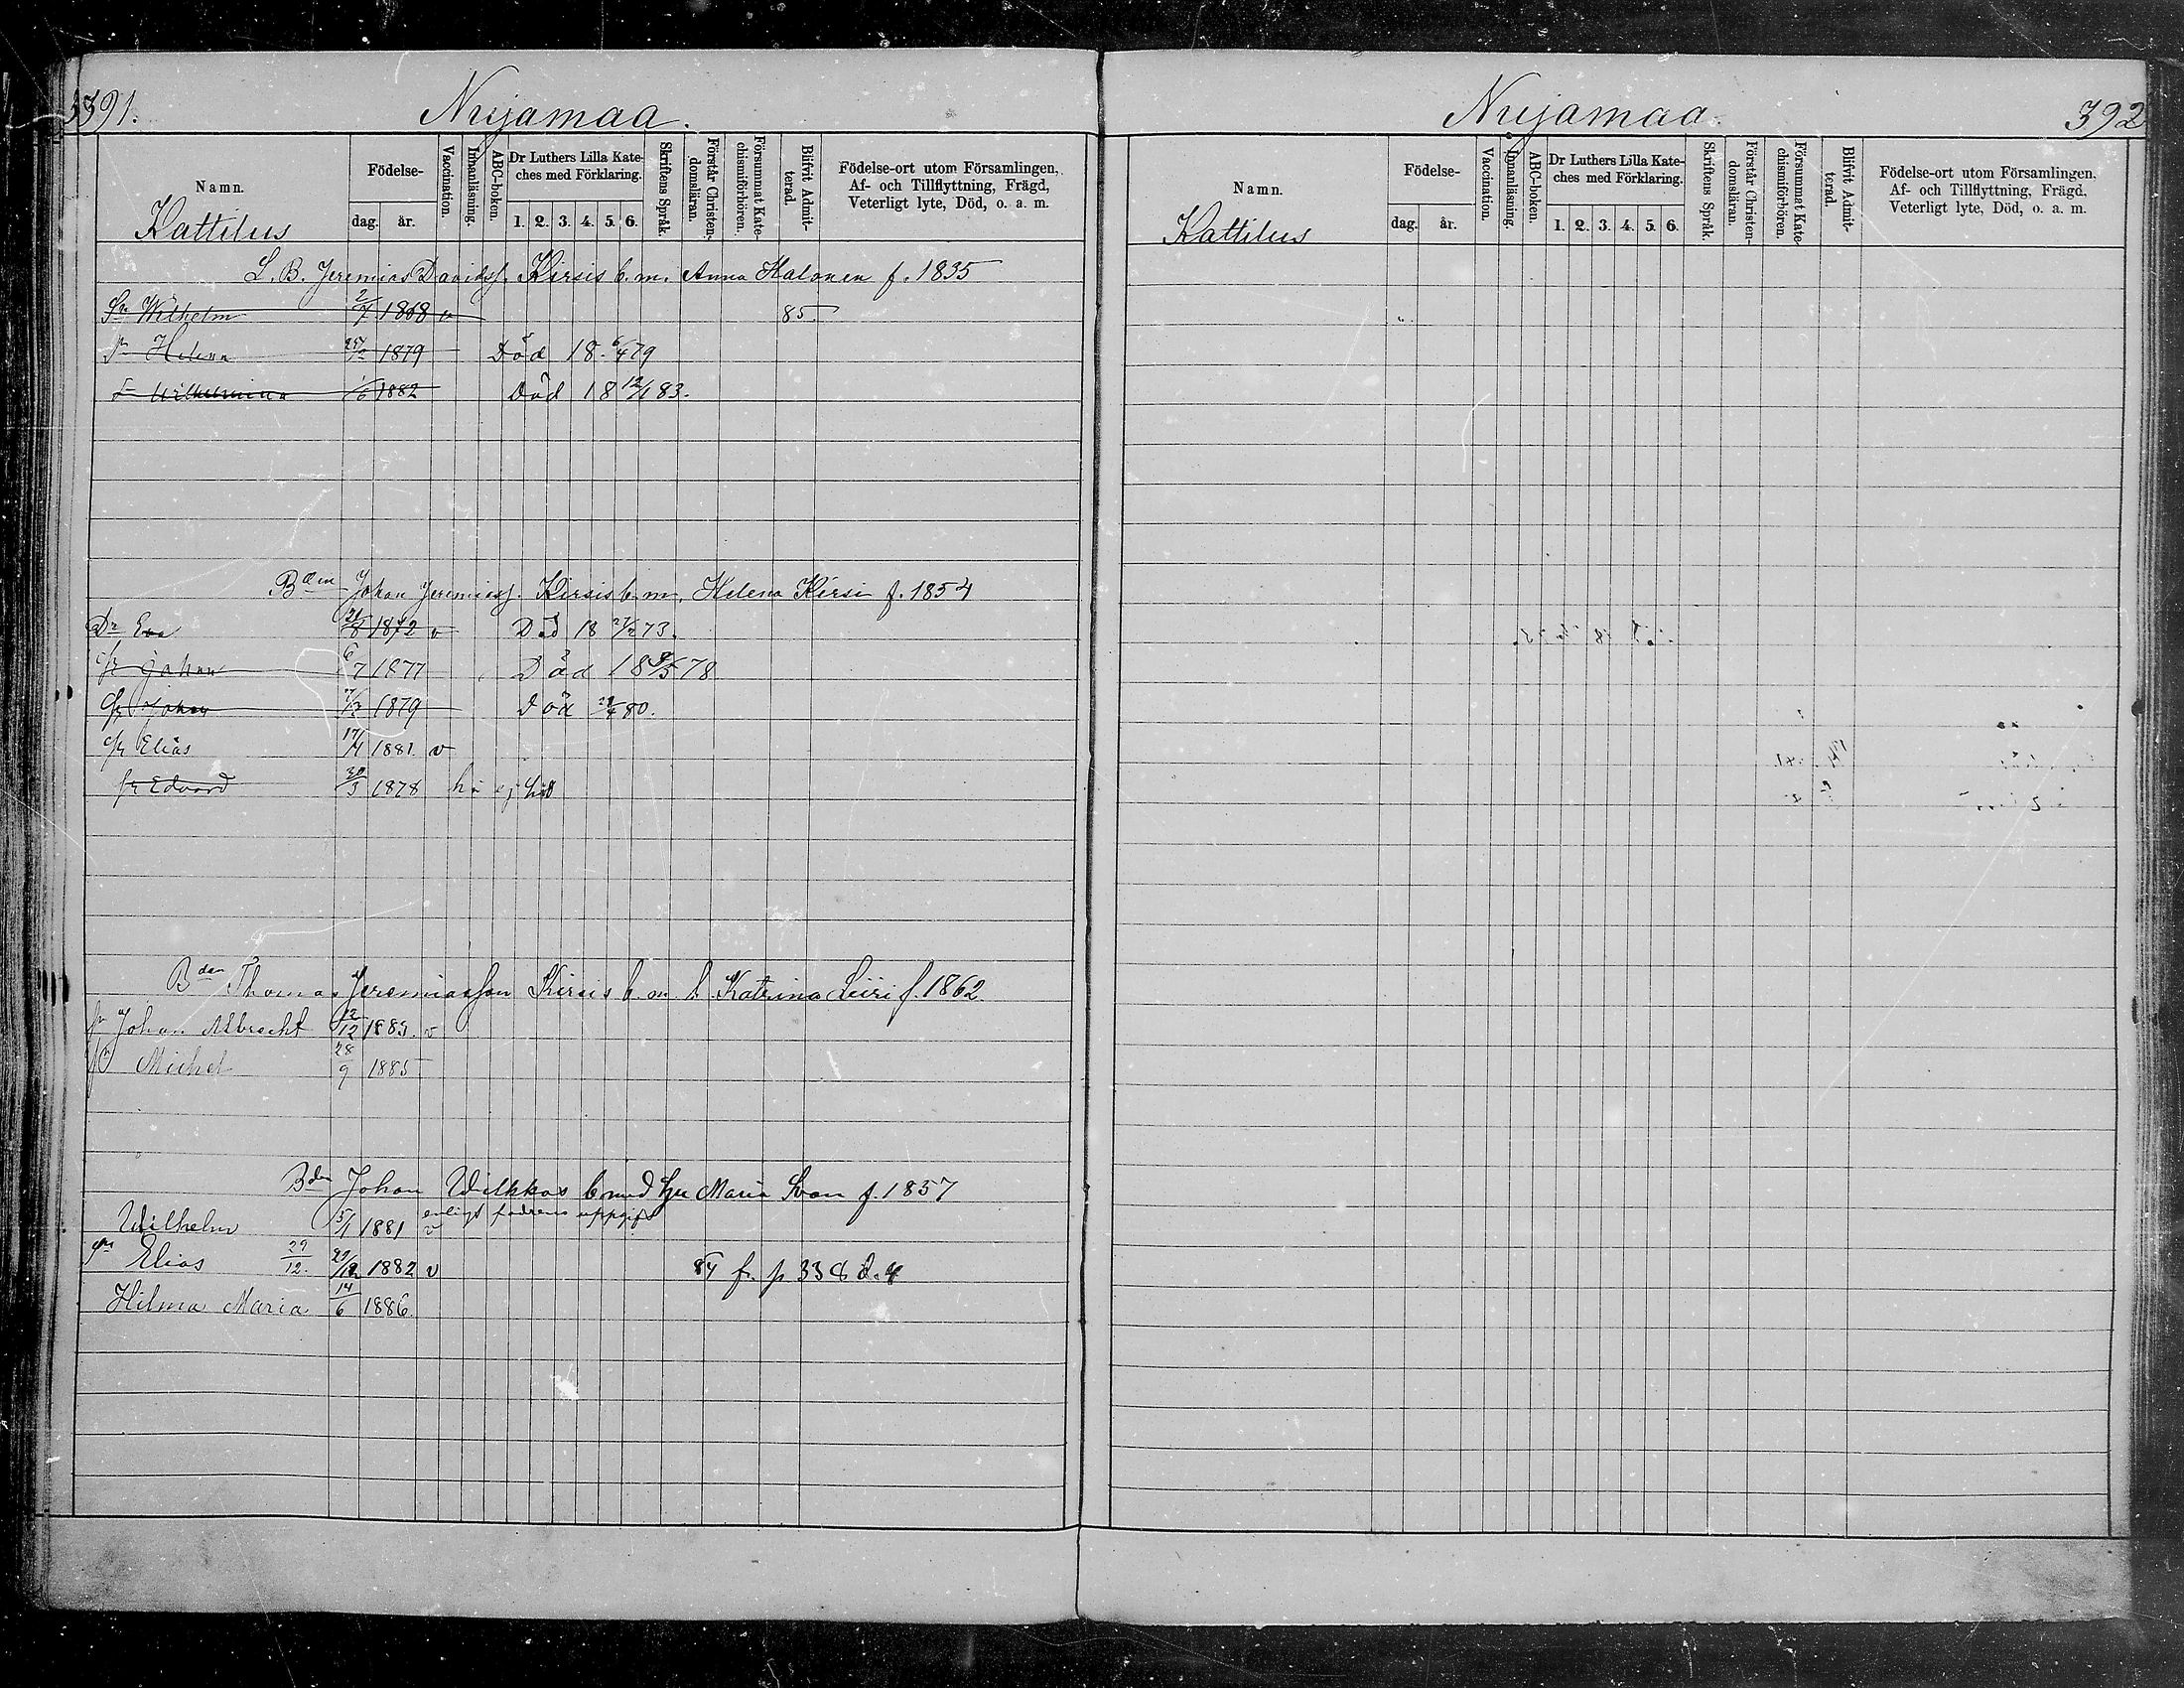 391.
Nuijamaa.
Namn.
Kattilus
Födelse-
dag. år.
Vaccination.
Innanläsning.
ABC-boken.
Dr Luthers Lilla Kate-
ches med Förklaring.
1. 2. 3. 4. 5. 6.
Skriftens Språk.
Förstår Christen-
domsläran.
Försummat Kate-
chismiförhören.
Blifvit Admit-
terad.
Födelse-ort utom Församlingen,
Af- och Tillflyttning, Frägd,
Veterligt lyte, Död, o. a. m.
L. B. Jeremias Davidss. Kirsis b. m. Anna Halonen f. 1835
Sr Wilhelm 2/7 1868 v 85.
Helena 1879 Död 18 6/4 79
Wilhelmina 1/6 1882 Död 18 12/1 83.
Bdm Johan Jeremiass. Kirsis b. m. Helena Kirsi f. 1854
Dr Eva 21/8 1872 v Död 18 73.
Johan 6/7 1877 Död 18 78
Johan 1879 Död 80.
Elias 17/4 1881. v
Edvard 30/3 1878 ej hit
Bden Thomas Jeremiasson Kirsis b. m. h. Katrina Leiri f. 1862.
Johan Albrecht 12/12 1883. v
Michel 28/9 1885
Bden Johan Wilkkas b med hu Maria f. 1857
enligt fadrens uppgift
Wilhelm 5/1 1881 v
Elias 29/12. 29/12 1882 v 84 fr. p 338
Hilma Maria 14/6 1886.
Nuijamaa.
392
Namn.
Kattilus
Födelse-
dag. år.
Vaccination.
Innanläsning.
ABC-boken.
Dr Luthers Lilla Kate-
ches med Förklaring.
1. 2. 3. 4. 5. 6.
Skriftens Språk.
Förstår Christen-
domsläran.
Försummat Kate-
chismiförhören.
Blifvit Admit-
terad.
Födelse-ort utom Församlingen,
Af- och Tillflyttning, Frägd,
Veterligt lyte, Död, o. a. m.